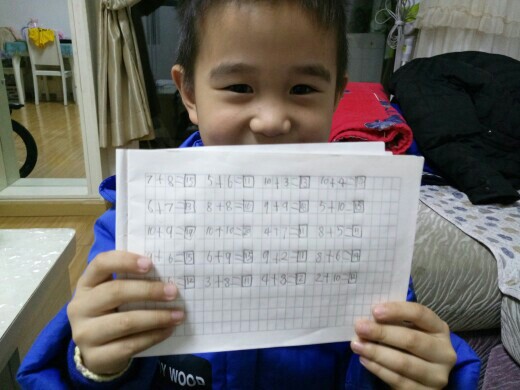 7+8=15 5+6=11 10+3=13 10+4=14
6+7=13 8+8=16 9+9=18 5+10=15
10+9=19 10+10=20 4+7=11 8+5=13
6+9=15 9+2=11 8+6=14
3+8=11 4+8=12 2+10=12
Y WOOD